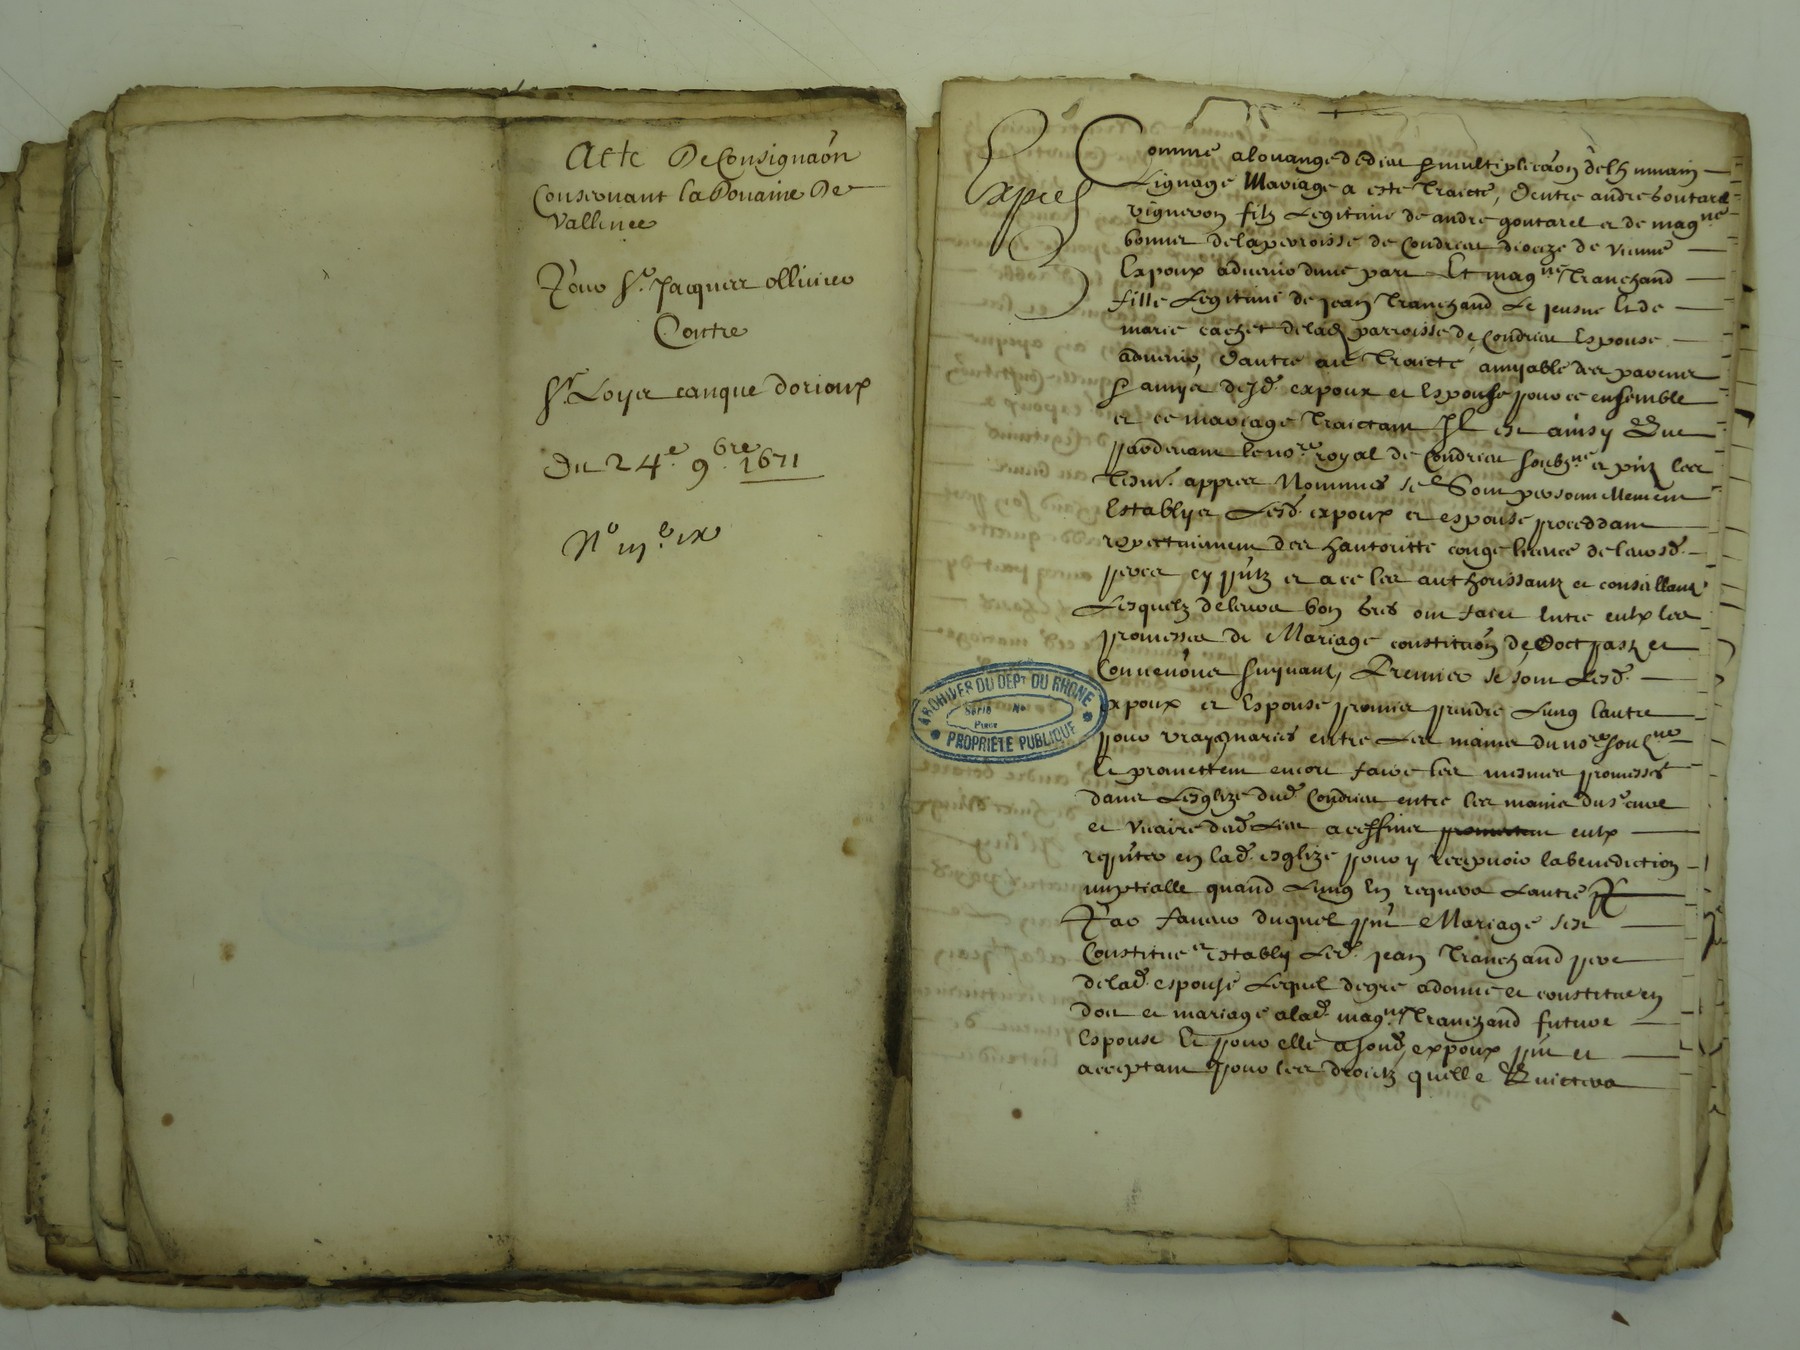 Acte De Consignaôn
Conservant la Douaine De
Vallence
Pour Sr. Jacques ollivier
Contre
Sr. Loyer canque dorioux
Du 24e. 9bre. 1671
No iij.e ix
Expied
Comme a louange de dieu & multiplicâon de lhumain
Lignage Mariage a este Traicté, Dentre andre Goutarel
vigneron filz Legitime de andre goutarel et de magne
bonnet de la parroisse de Condrieu dioceze de vienne
Expoux advenir dune part Et magne Tranchand
fille Legitime de jean Tranchand Le jeusne Et de
marie cachet de lad parroisse de Condrieu Espouse
advenir, Dautre au Traicté amyable des parens
& amys desd. expoux et Espouse pour ce ensemble
et ce mariage Traictant Il est ainsy Que
pardevant le nore royal de Condrieu soubzne et pntz les
Tesm. appres Nommes se Sont personnellement
Establyes Lesd. expoux et espouse proceddant
respectivement des hautoritte conge licence de leursd.
peres cy pntz et a ce les authorissantz et conseillant
Lesquelz de leurs bon gres ont faict Entre eulx les
promesses de Mariage constituôn de Doct pastz et
Convenôns suyvant, Premier se sont Lesd.
expoux et Espouse promis prendre Lung lautre
pour vray maries entre Les mains du nore soubzne
Et promettent encore faire les mesmes promesses
dans Lesglize dud. Condrieu entre les mains du sr cure
et Vicaire dud. Lieu a ces fins promettent eulx
rapûter en lad. esglize pour y recepvoir la benediction
nuptialle quand Lung En requera Lautre
Par faveur duquel pnt Mariage sest
Constitue et establý Led. jean Tranchand pere
de lad. espouse Lequel de gre a donne et constitue en
dot et mariage a lad. magne Tranchand future
Espouse Et pour elle a sond. expoux pnt et
acceptant pour les droictz quelle Quictera
ARCHIVES DU DEPt DU RHONE
Série No
Pièce
PROPRIETE PUBLIQUE